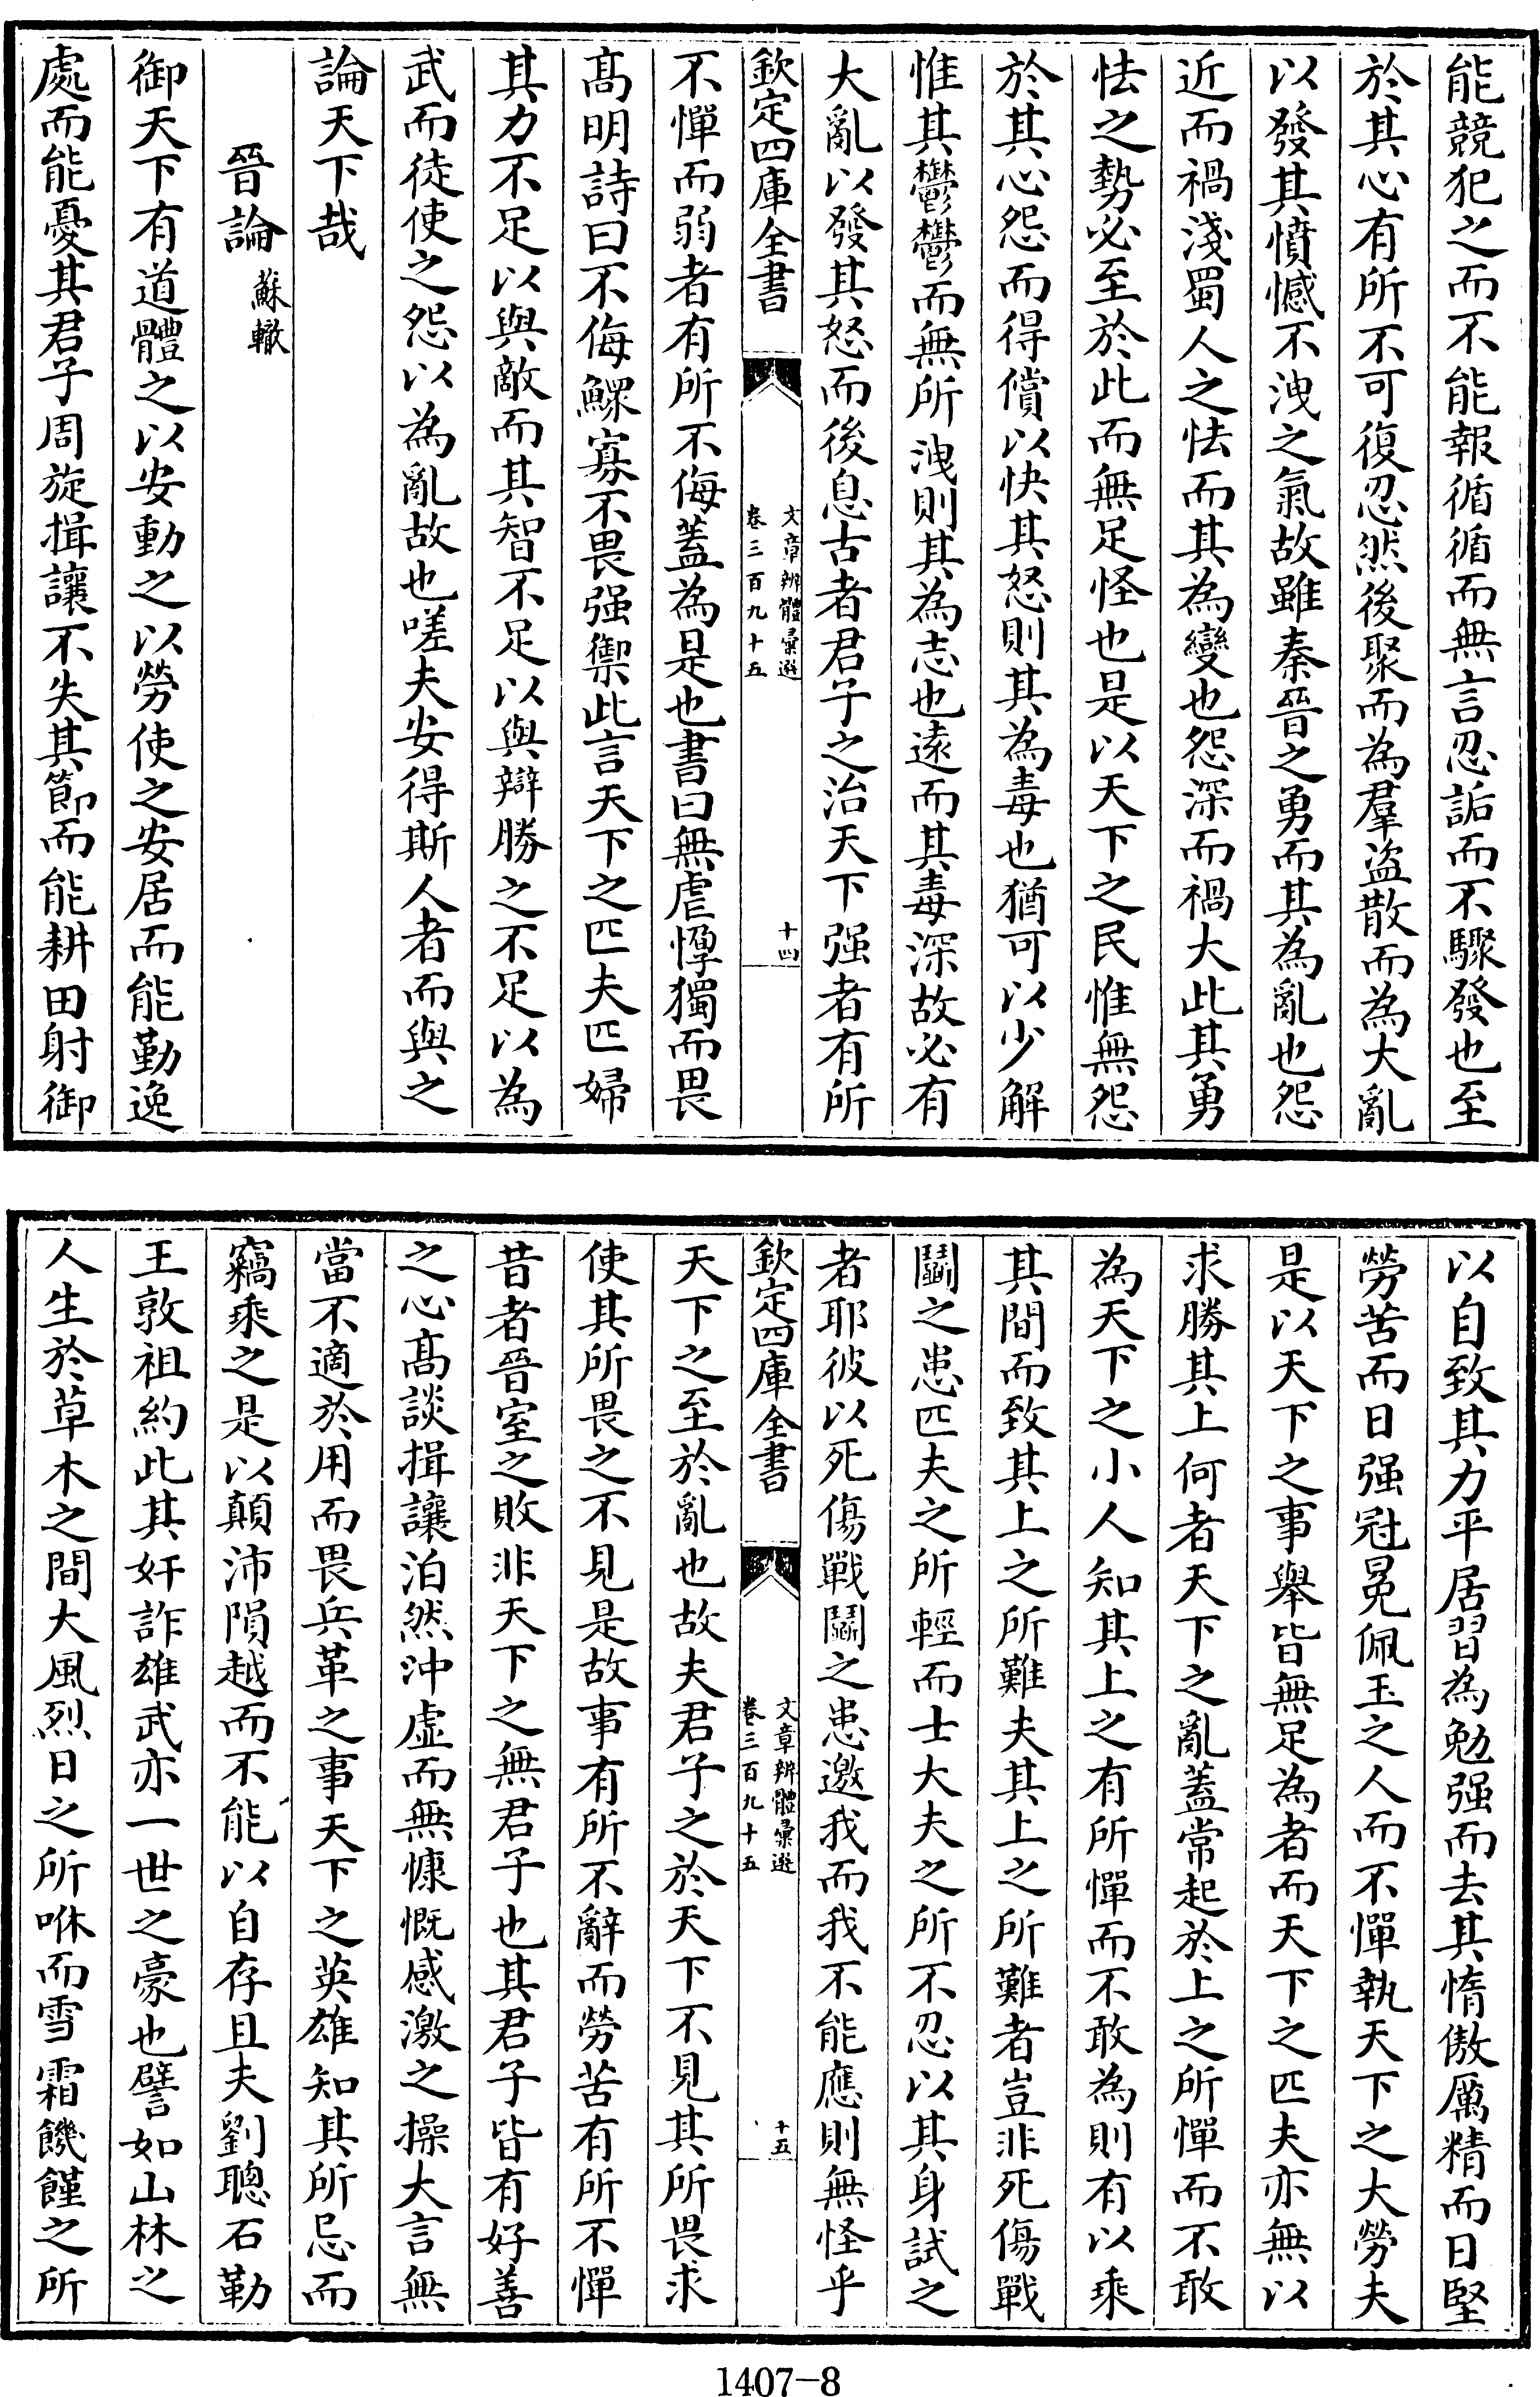 能競犯之而不能報循循而無言忍詬而不驟發也至
於其心有所不可復忍然後聚而為羣盜散而為大亂
以發其憤憾不洩之氣故雖秦晉之勇而其為亂也怨
近而禍淺蜀人之怯而其為變也怨深而禍大此其勇
怯之勢必至於此而無足怪也是以天下之民惟無怨
於其心怨而得償以快其怒則其為毒也猶可以少解
惟其鬱鬱而無所洩則其為志也遠而其毒深故必有
大亂以發其怒而後息古者君子之治天下强者有所
欽定四庫全書
文章辨體彙選
卷三百九十五
十四
不憚而弱者有所不侮蓋為是也書曰無虐惸獨而畏
髙明詩曰不侮鰥寡不畏强禦此言天下之匹夫匹婦
其力不足以與敵而其智不足以與辯勝之不足以為
武而徒使之怨以為亂故也嗟夫安得斯人者而與之
論天下哉
晉論 蘇轍
御天下有道體之以安動之以勞使之安居而能勤逸
處而能憂其君子周旋揖讓不失其節而能耕田射御
以自致其力平居習為勉强而去其惰傲厲精而日堅
勞苦而日强冠冕佩玉之人而不憚執天下之大勞夫
是以天下之事舉皆無足為者而天下之匹夫亦無以
求勝其上何者天下之亂蓋常起於上之所憚而不敢
為天下之小人知其上之有所憚而不敢為則有以乘
其間而致其上之所難夫其上之所難者豈非死傷戰
鬬之患匹夫之所輕而士大夫之所不忍以其身試之
者耶彼以死傷戰鬬之患邀我而我不能應則無怪乎
欽定四庫全書
文章辨體彙選
卷三百九十五
十五
天下之至於亂也故夫君子之於天下不見其所畏求
使其所畏之不見是故事有所不辭而勞苦有所不憚
昔者晉室之敗非天下之無君子也其君子皆有好善
之心髙談揖讓泊然沖虛而無慷慨感激之操大言無
當不適於用而畏兵革之事天下之英雄知其所忌而
竊乘之是以顛沛隕越而不能以自存且夫劉聰石勒
王敦祖約此其奸詐雄武亦一世之豪也譬如山林之
人生於草木之間大風烈日之所咻而雪霜饑饉之所
1407-8